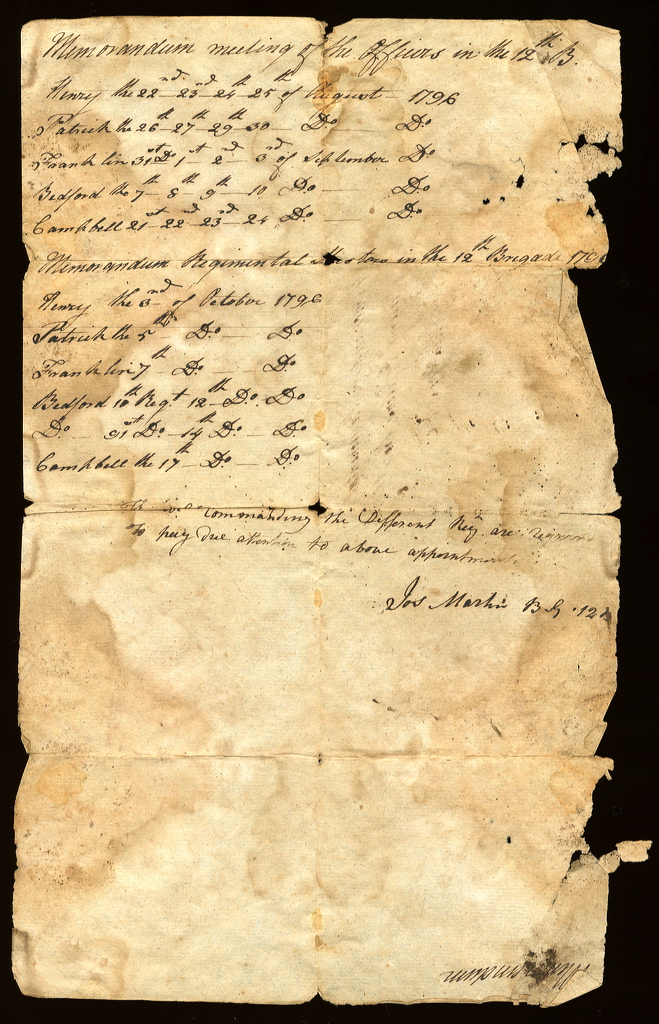 Memorandum meeting of the Officers in the 12th B.
Henry the 22nd 23rd 24th 25th of August — 1796
Patrick the 26th 27th 29th 30 — Do Do
Franklin 31st Do 1st 2nd 3rd of September Do
Bedford the 7th 8th 9th 10 Do — Do
Campbell 21st 22nd 23rd 24 Do — Do
Memorandum Regimental in the 12th Brigade
Henry the 3rd of October 1796
Patrick the 5th Do — Do
Franklin 7th Do — Do
Bedford 10th Regt 12 — Do Do
Do — Do — 14th Do — Do
Campbell the 17th — Do — Do
commanding the Different Regt are
To pay due attention to above appointments
Jos Martin B G 12
Memorandum